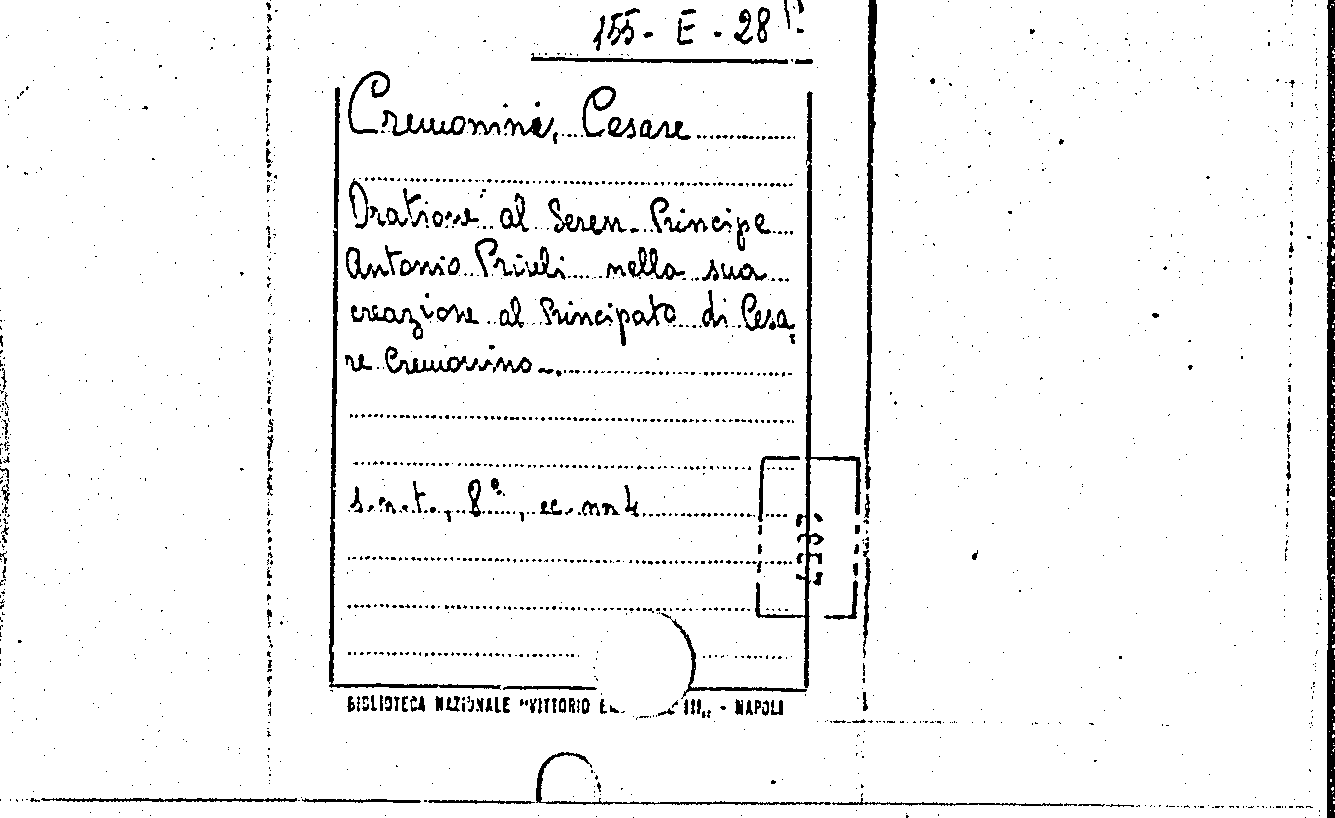 155- E - 28
Cremonini, Cesare
Oratione al Seren. Principe
Antonio Priuli nella sua
creazione al Principato di Cesa
re Cremonino-.
s.n.t., 8°, cc. nn 4
BIBLIOTECA NAZIONALE "VITTORIO III„ - NAPOLI